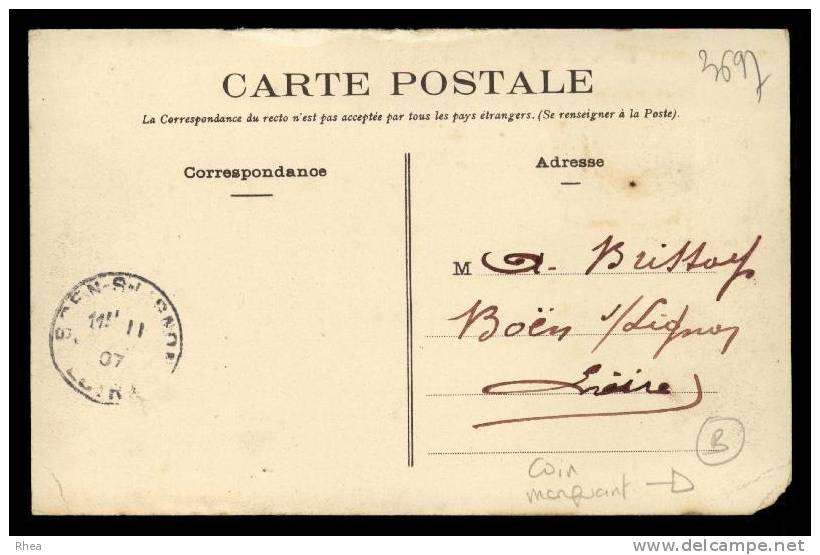 3697
CARTE POSTALE
La Correspondance du recto n'est pas acceptée par tous les pays étrangers. (Se renseigner à la Poste).
Correspondance
Adresse
M A.
Boën s/Lignon
Loire
BOEN-S-LIGNON
11
07
LOIRE
B
coin
manquant
Rhea
www.delcampe.net